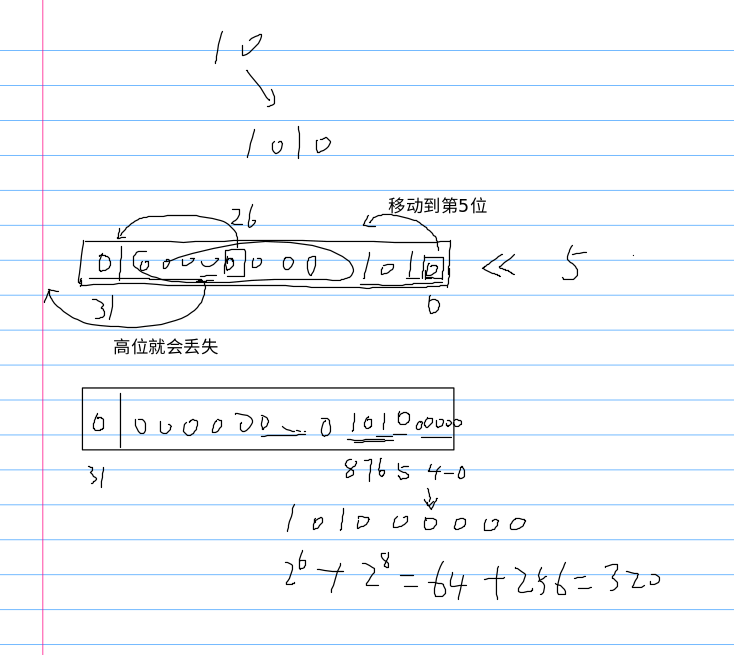 10
1010
26 移动到第5位
0 0 0 0 0 0 0 0 0 1 0 1 0 << 5
31 0
高位就会丢失
0 0 0 0 0 0 0 ... 0 1 0 1 0 0 0 0 0 0
31 8 7 6 5 4-0
1 0 1 0 0 0 0 0 0
2^6 + 2^8 = 64 + 256 = 320